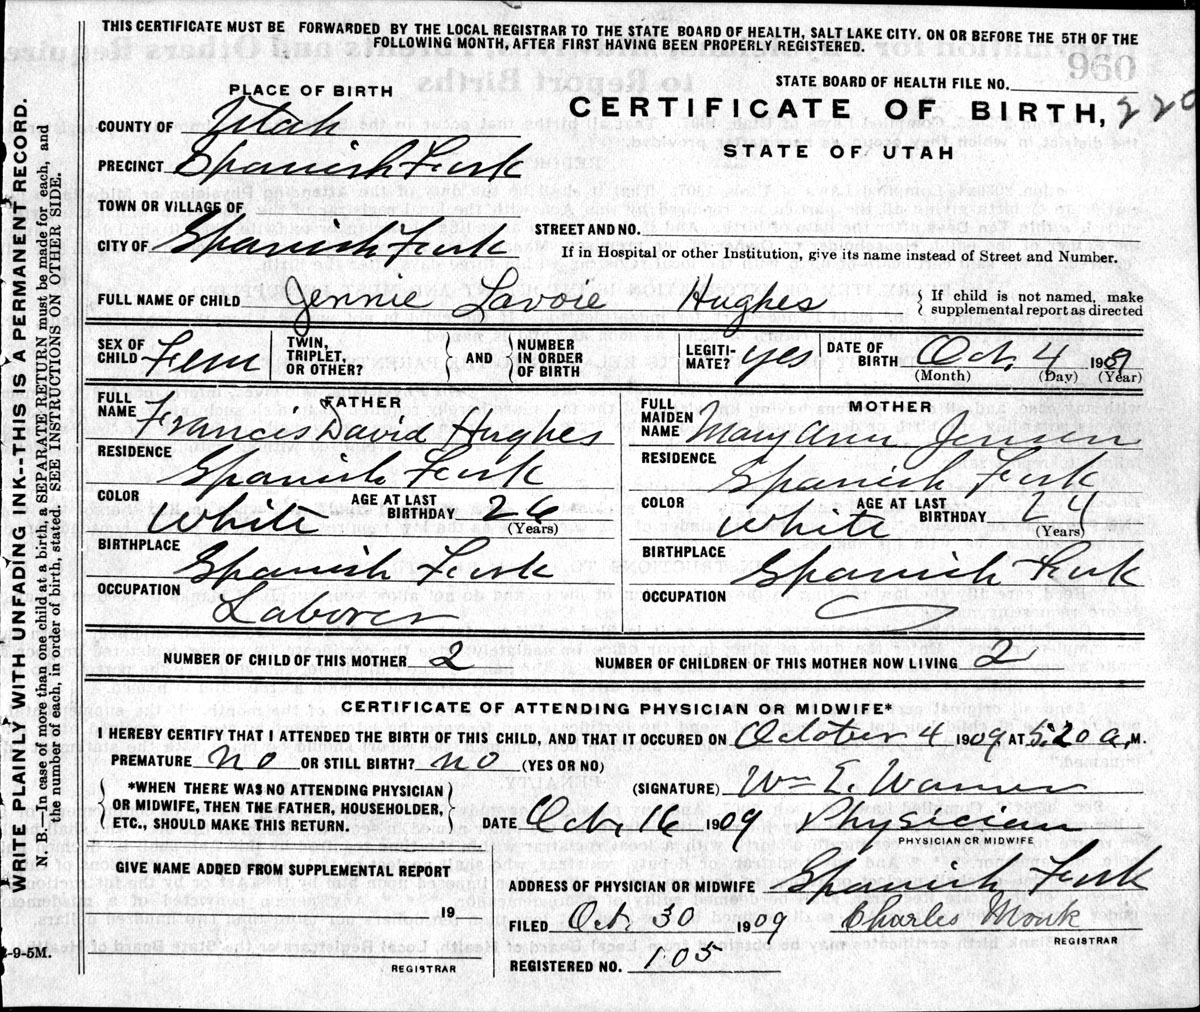 THIS CERTIFICATE MUST BE FORWARDED BY THE LOCAL REGISTRAR TO THE STATE BOARD OF HEALTH, SALT LAKE CITY. ON OR BEFORE THE 5TH OF THE
FOLLOWING MONTH, AFTER FIRST HAVING BEEN PROPERLY REGISTERED.
STATE BOARD OF HEALTH FILE NO.
PLACE OF BIRTH
CERTIFICATE OF BIRTH, 220
STATE OF UTAH
COUNTY OF Utah
PRECINCT Spanish Fork
TOWN OR VILLAGE OF
CITY OF Spanish Fork
STREET AND NO.
If in Hospital or other Institution, give its name instead of Street and Number.
FULL NAME OF CHILD Jennie Lavoie Hughes
If child is not named, make
supplemental report as directed
SEX OF CHILD Fem
TWIN, TRIPLET, OR OTHER?
AND
NUMBER IN ORDER OF BIRTH
LEGITI-MATE? yes
DATE OF BIRTH Oct. 4 1909
(Month) (Day) (Year)
FATHER
FULL NAME Frances David Hughes
RESIDENCE Spanish Fork
COLOR White
AGE AT LAST BIRTHDAY 26
(Years)
BIRTHPLACE Spanish Fork
OCCUPATION Laborer
MOTHER
FULL MAIDEN NAME Mary Ann Jensen
RESIDENCE Spanish Fork
COLOR White
AGE AT LAST BIRTHDAY 24
(Years)
BIRTHPLACE Spanish Fork
OCCUPATION
NUMBER OF CHILD OF THIS MOTHER 2
NUMBER OF CHILDREN OF THIS MOTHER NOW LIVING 2
CERTIFICATE OF ATTENDING PHYSICIAN OR MIDWIFE*
I HEREBY CERTIFY THAT I ATTENDED THE BIRTH OF THIS CHILD, AND THAT IT OCCURED ON October 4 1909 AT 5.20 a. M.
PREMATURE no OR STILL BIRTH? no (YES OR NO)
*WHEN THERE WAS NO ATTENDING PHYSICIAN
OR MIDWIFE, THEN THE FATHER, HOUSEHOLDER,
ETC., SHOULD MAKE THIS RETURN.
(SIGNATURE) Wm E. Warner
DATE Oct. 16 1909 Physician
PHYSICIAN OR MIDWIFE
GIVE NAME ADDED FROM SUPPLEMENTAL REPORT
19
REGISTRAR
ADDRESS OF PHYSICIAN OR MIDWIFE Spanish Fork
FILED Oct. 30 1909 Charles Monk
REGISTRAR
REGISTERED NO. 105
-9-5M.
WRITE PLAINLY WITH UNFADING INK--THIS IS A PERMANENT RECORD.
N. B.—In case of more than one child at a birth, a SEPARATE RETURN must be made for each, and
the number of each, in order of birth, stated. SEE INSTRUCTIONS ON OTHER SIDE.